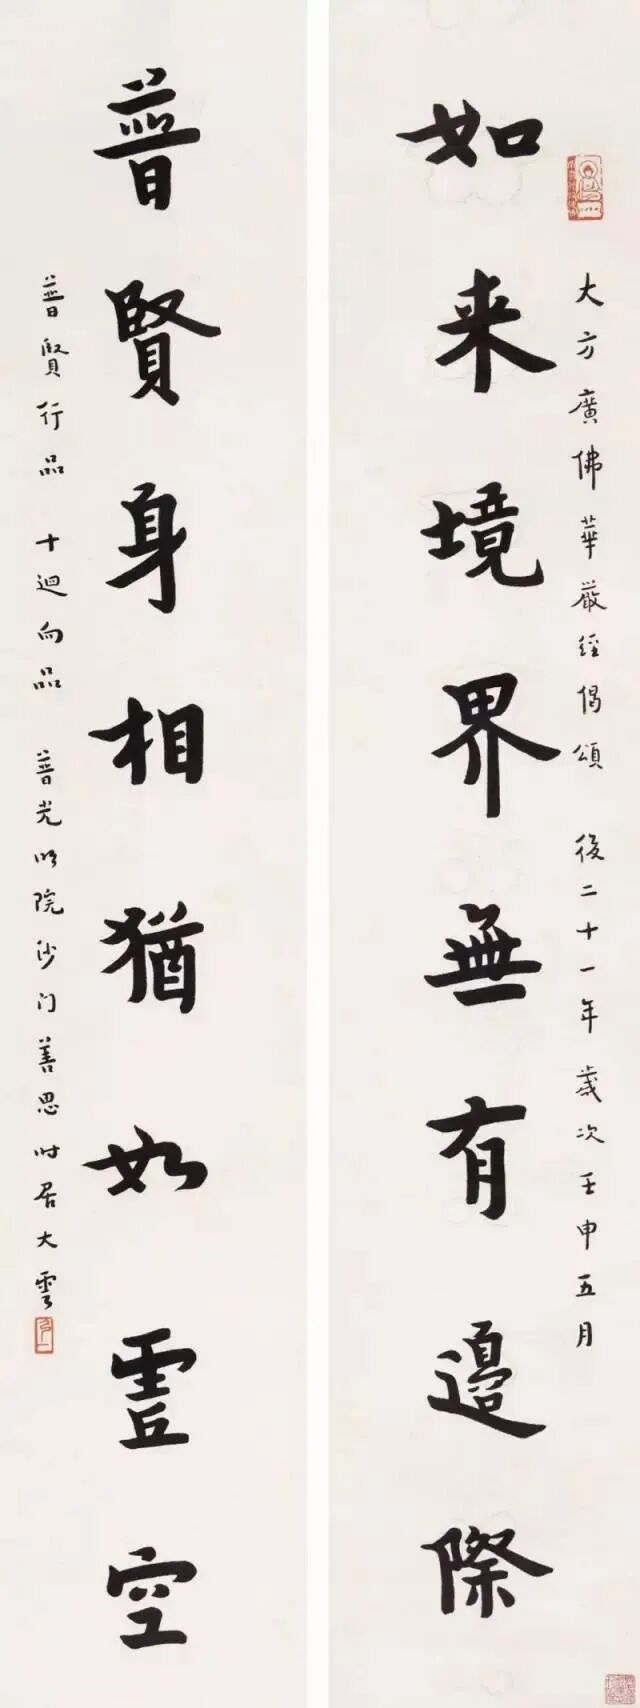 大方廣佛華嚴經偈頌 後二十一年歲次壬申五月
如来境界無有邊際
普賢身相猶如虛空
普賢行品 十迴向品 普光明院沙门善思时居大雲